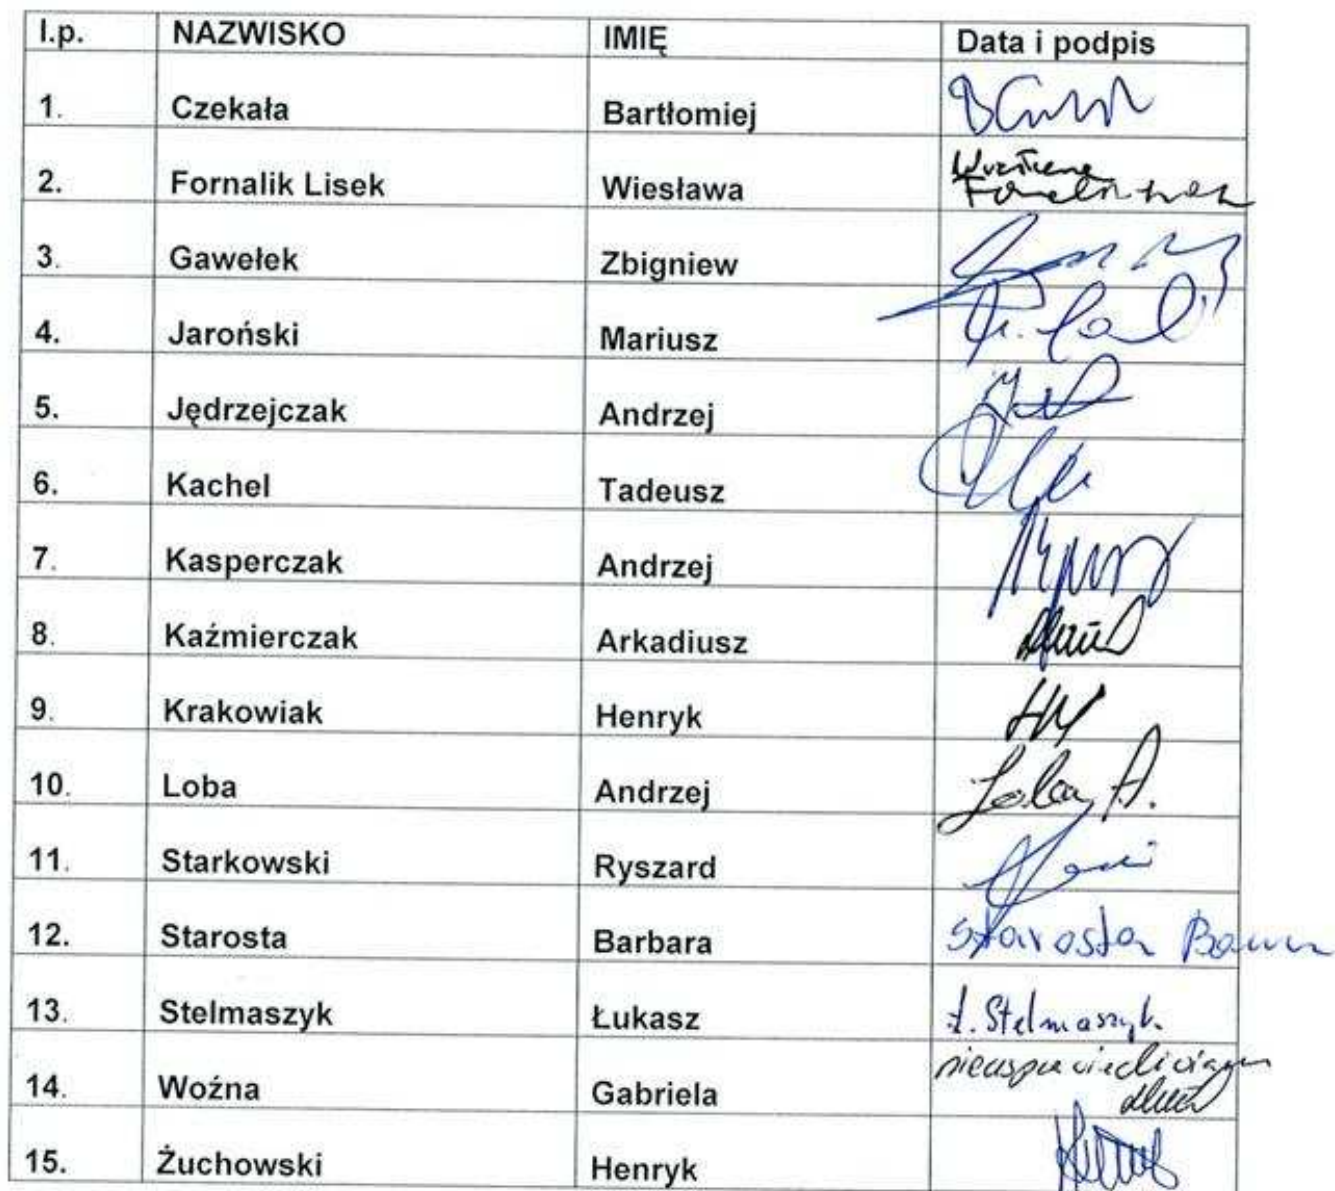 l.p. NAZWISKO IMIĘ Data i podpis
1. Czekała Bartłomiej
2. Fornalik Lisek Wiesława
3. Gawełek Zbigniew
4. Jaroński Mariusz
5. Jędrzejczak Andrzej
6. Kachel Tadeusz
7. Kasperczak Andrzej
8. Kaźmierczak Arkadiusz
9. Krakowiak Henryk
10. Loba Andrzej Loba A.
11. Starkowski Ryszard
12. Starosta Barbara Starosta
13. Stelmaszyk Łukasz Ł. Stelmaszyk
14. Woźna Gabriela
15. Żuchowski Henryk